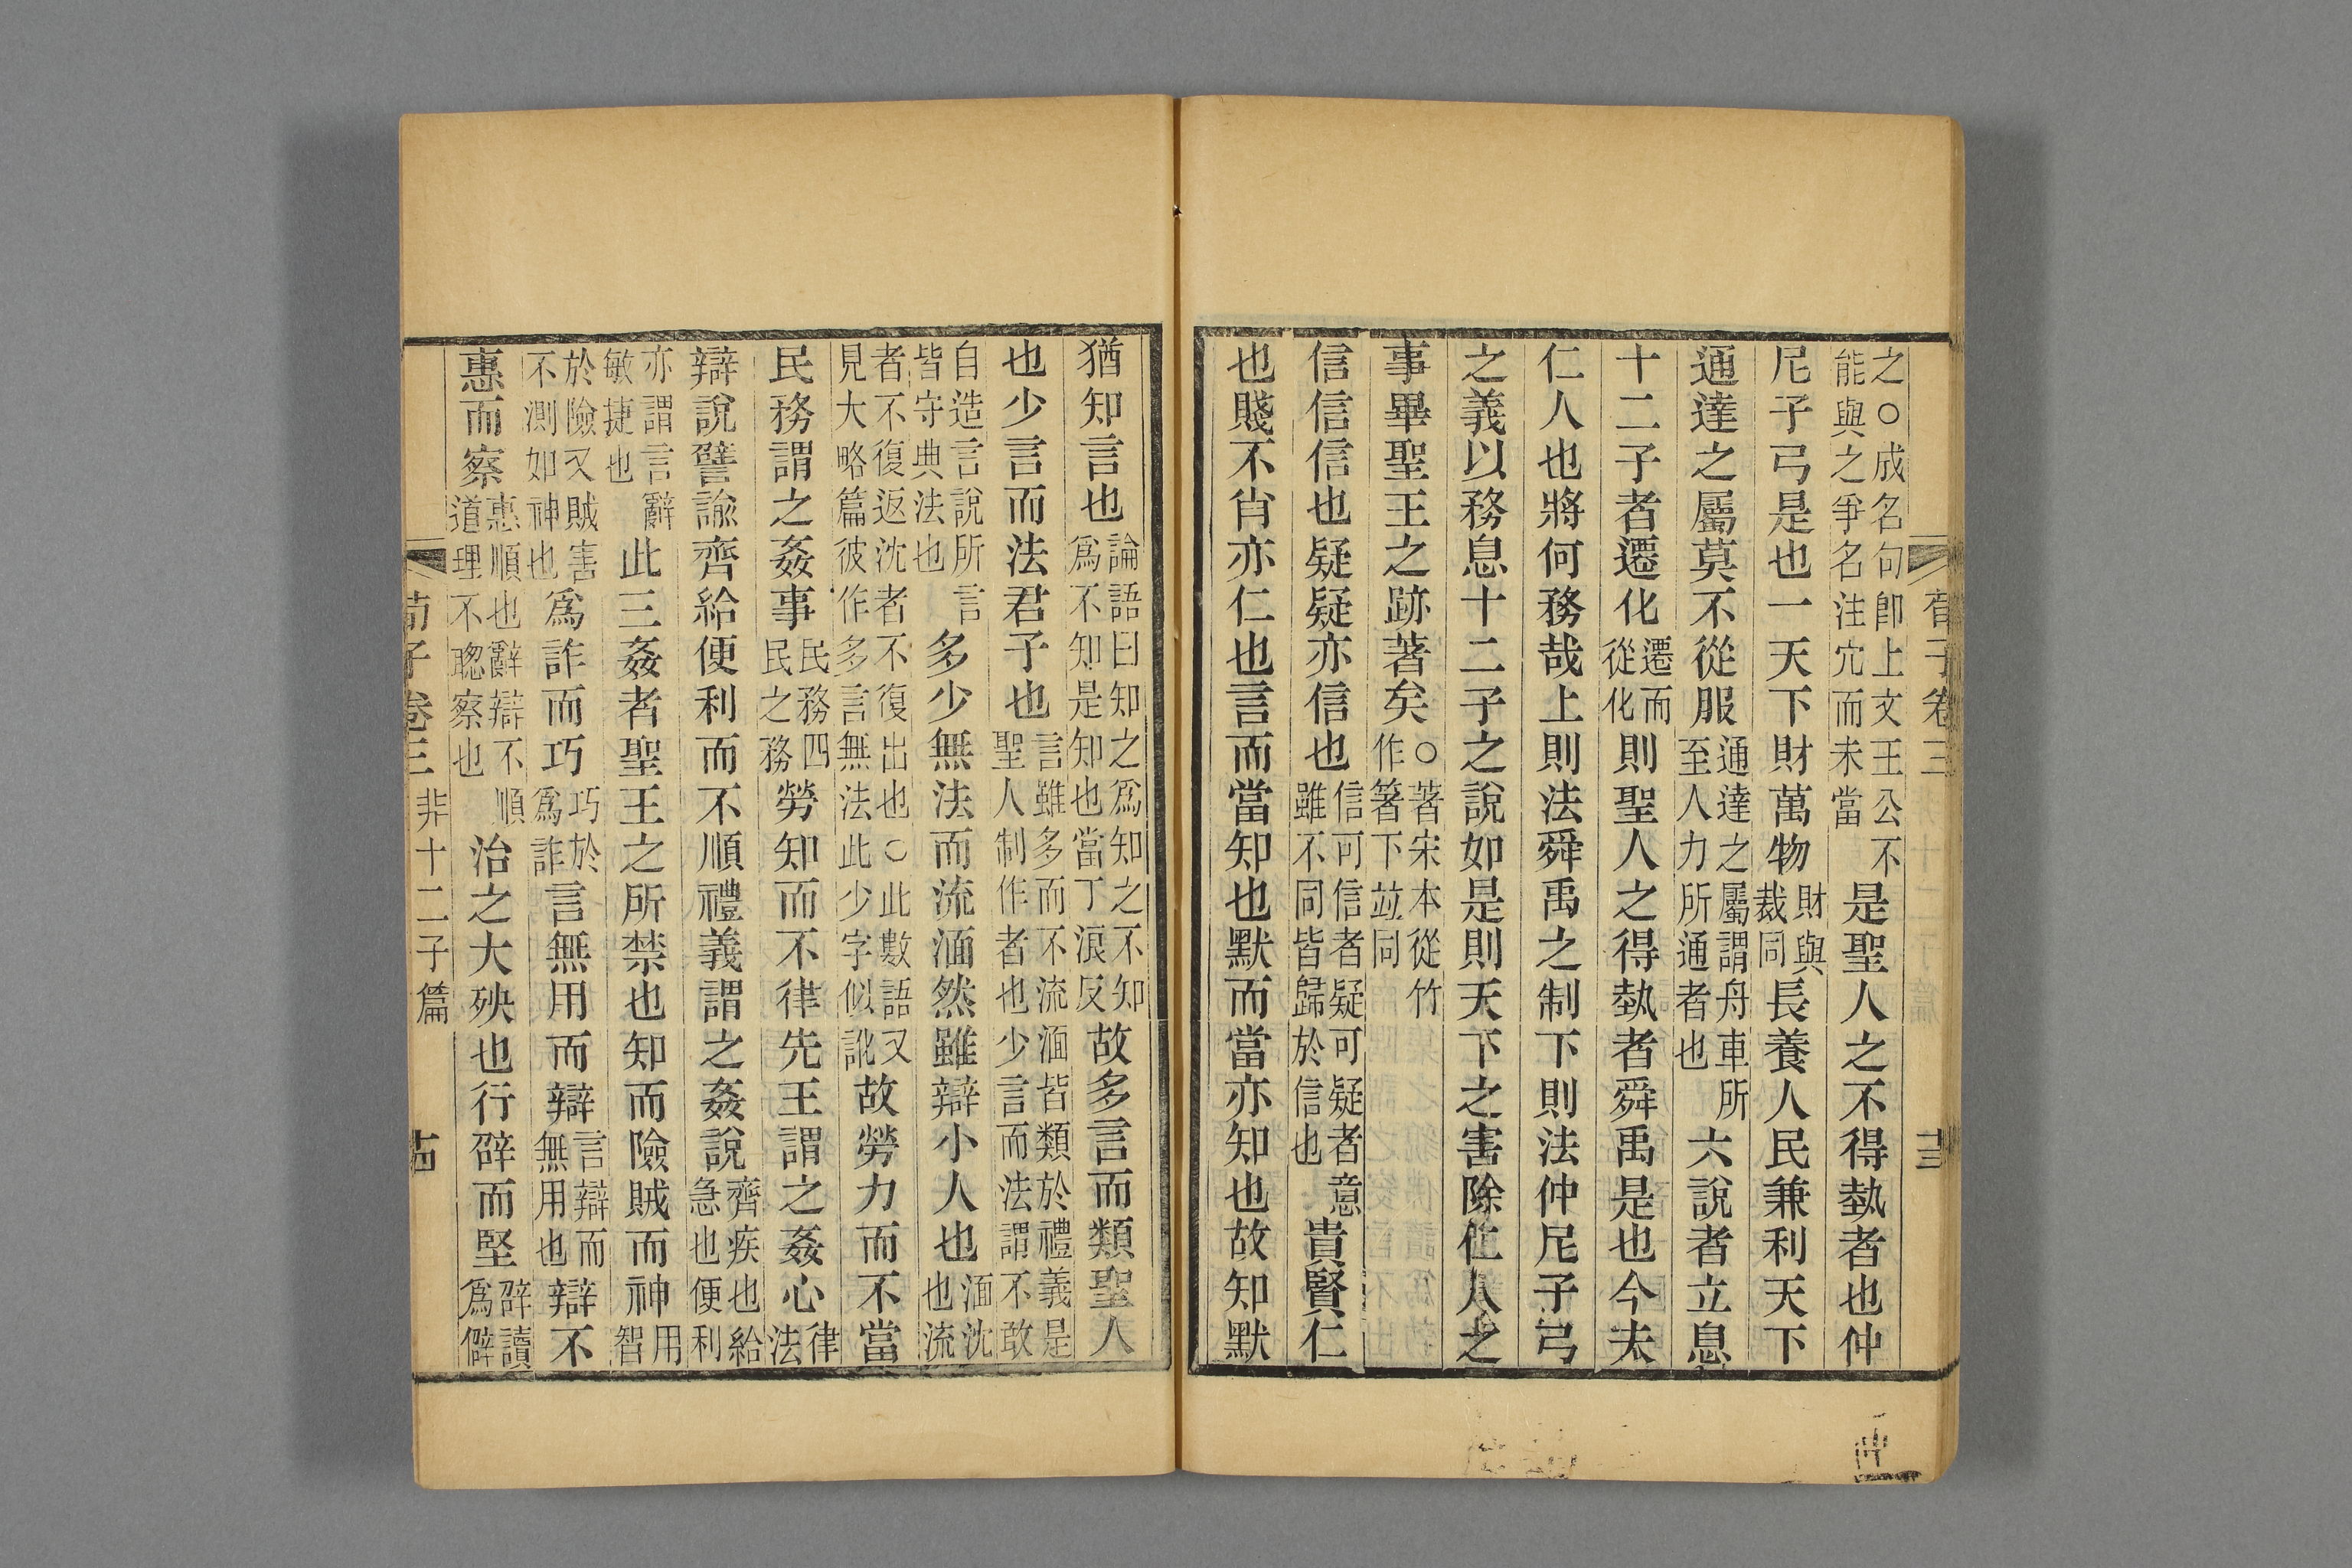 荀子卷三
十三
之○成名句卽上文王公不
能與之爭名注宂而未當
是聖人之不得埶者也仲
尼子弓是也一天下財萬物
財與
裁同
長養人民兼利天下
通達之屬莫不從服
通達之屬謂舟車所
至人力所通者也
六說者立息
十二子者遷化
遷而
從化
則聖人之得埶者舜禹是也今夫
仁人也將何務哉上則法舜禹之制下則法仲尼子弓
之義以務息十二子之說如是則天下之害除仁人之
事畢聖王之跡著矣
○著宋本從竹
作箸下竝同
信信信也疑疑亦信也
信可信者疑可疑者意
雖不同皆歸於信也
貴賢仁
也賤不肖亦仁也言而當知也默而當亦知也故知默
猶知言也
論語曰知之爲知之不知
爲不知是知也當丁浪反
故多言而類聖人
也少言而法君子也
言雖多而不流湎皆類於禮義是
聖人制作者也少言而法謂不敢
自造言說所言
皆守典法也
多少無法而流湎然雖辯小人也
湎沈
也流
者不復返沈者不復出也○此數語又
見大略篇彼作多言無法此少字似訛
故勞力而不當
民務謂之姦事
民務四
民之務
勞知而不律先王謂之姦心
律
法
辯說譬諭齊給便利而不順禮義謂之姦說
齊疾也給
急也便利
亦謂言辭
敏捷也
此三姦者聖王之所禁也知而險賊而神
用
智
於險又賊害
不測如神也
爲詐而巧
巧於
爲詐
言無用而辯
言辯而
無用也
辯不
惠而察
惠順也辭辯不順
道理不聰察也
治之大殃也行辟而堅
辟讀
爲僻
荀子卷三
非十二子篇
十四